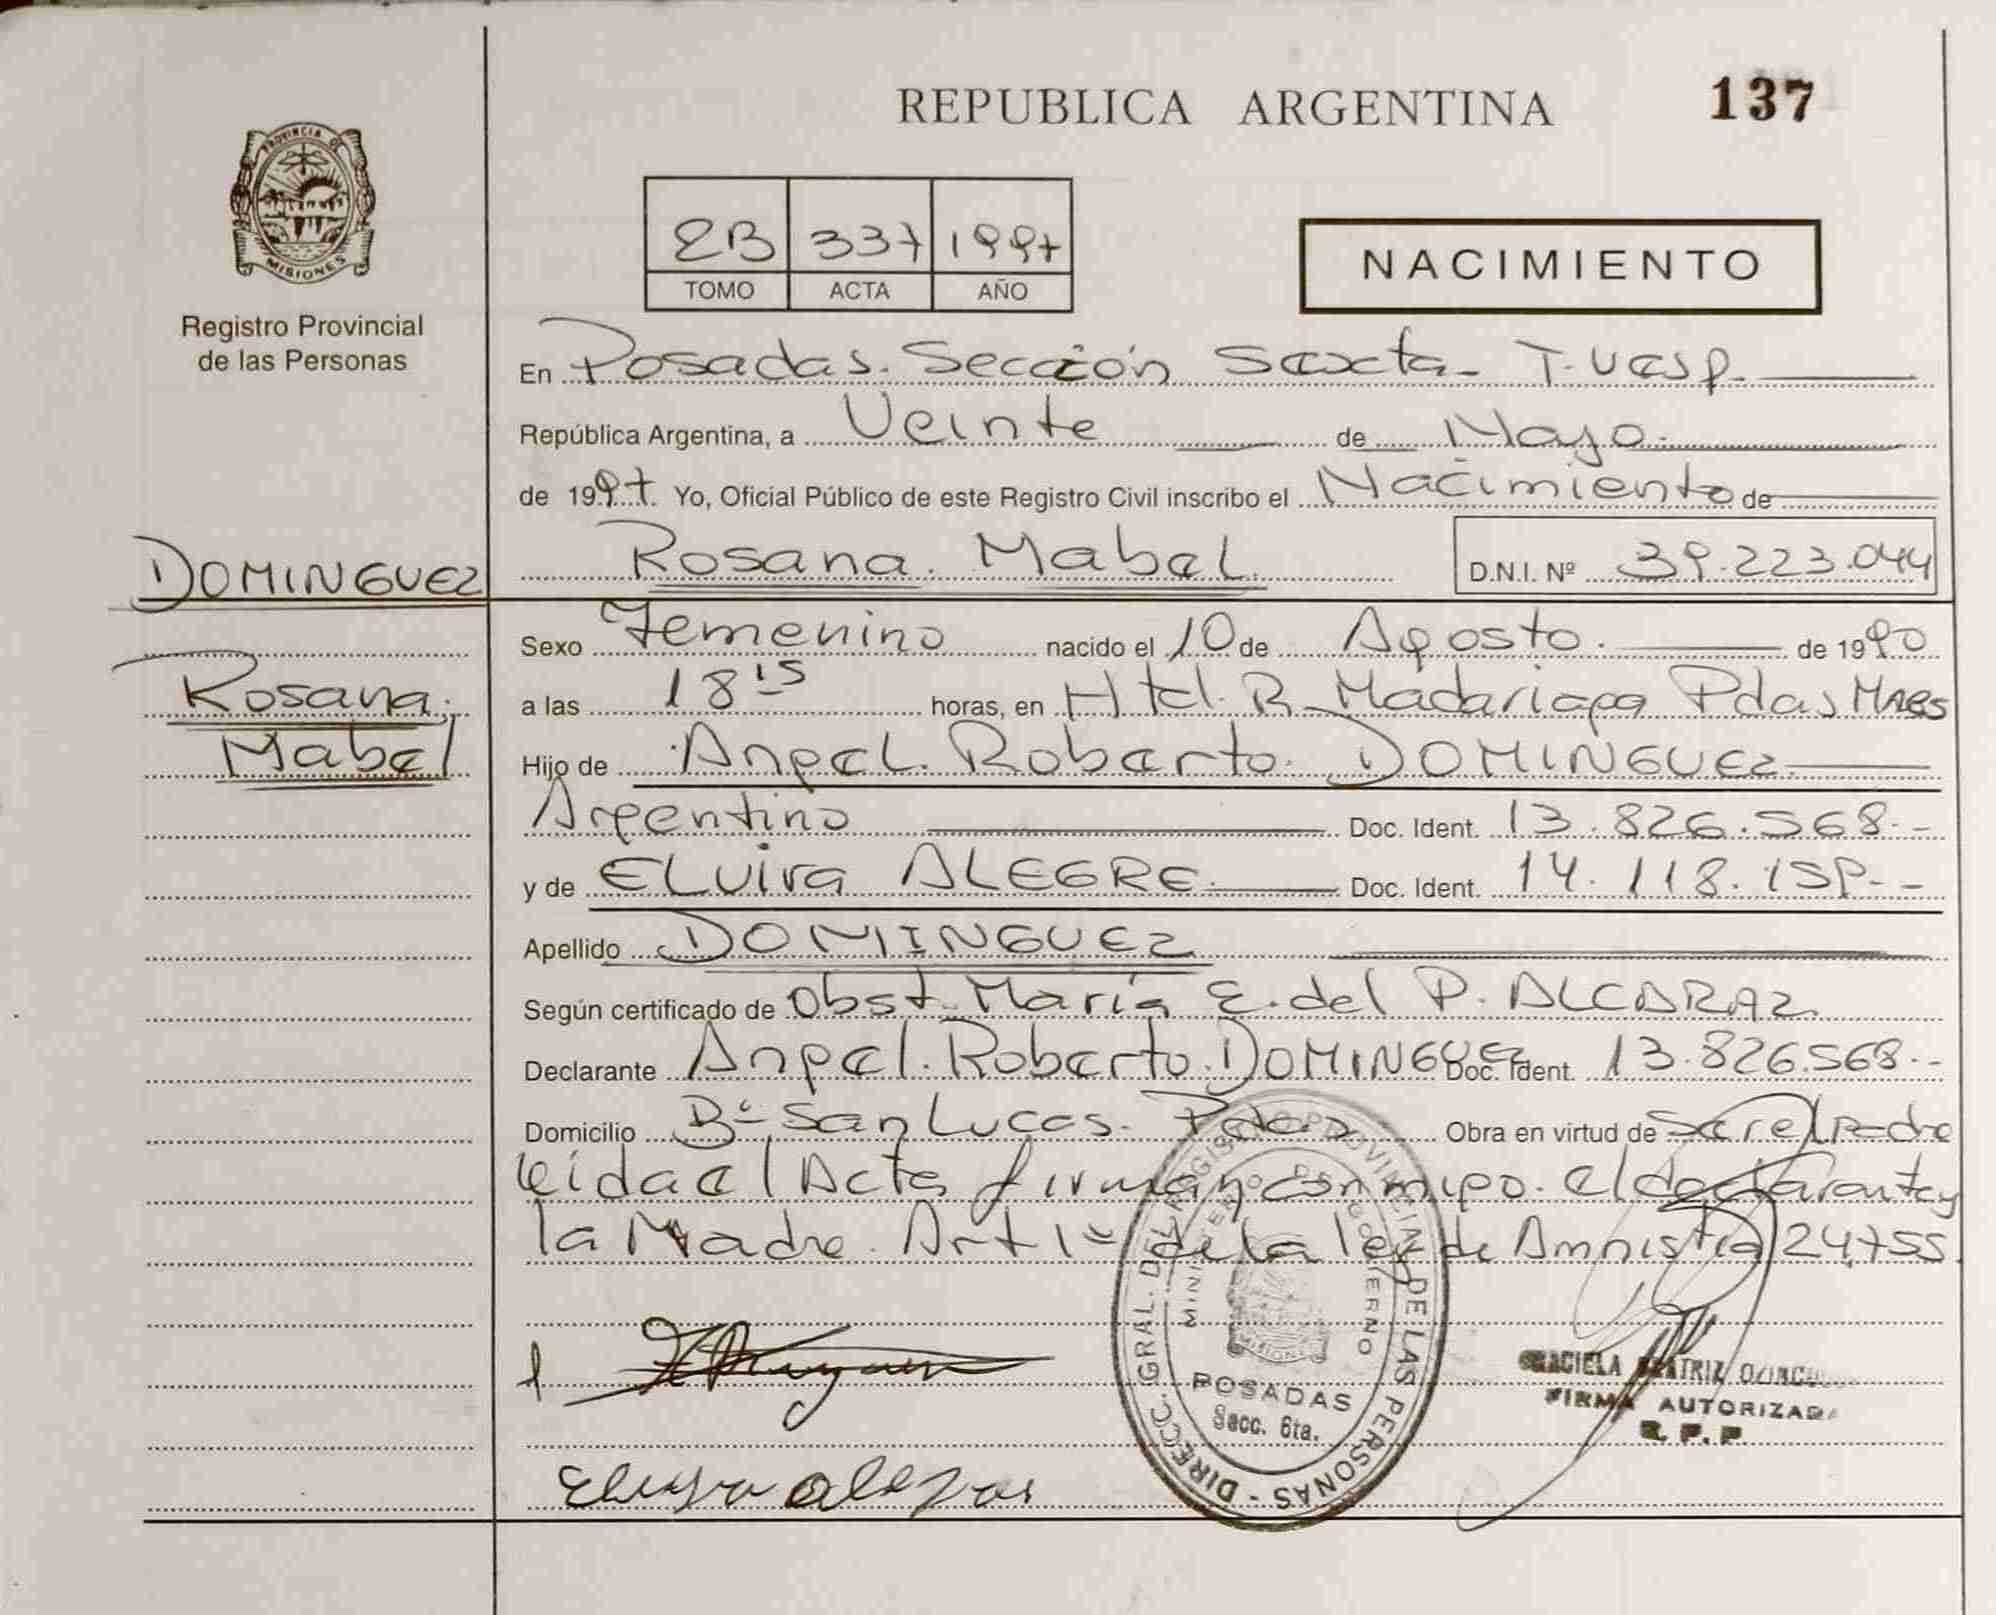 REPUBLICA ARGENTINA
137
PROVINCIA DE
MISIONES
Registro Provincial
de las Personas
2B 337 1997
TOMO ACTA AÑO
NACIMIENTO
En Posadas. Sección Sexta -
República Argentina, a Veinte de Mayo.
de 1997. Yo, Oficial Público de este Registro Civil inscribo el Nacimiento de
DOMINGUEZ
Rosana. Mabel. D.N.I. Nº 39.223.044
Rosana.
Mabel
Sexo Femenino nacido el 10 de Agosto. de 1990
a las 18 15 horas, en Htal. R. Madariaga Pdas Mnes
Hijo de Angel. Roberto. DOMINGUEZ.
Argentino Doc. Ident. 13.826.568.-
y de ELvira ALEGRE. Doc. Ident. 14.118.159.-
Apellido DOMINGUEZ
Según certificado de Obst. María E. del P. ALCARAZ.
Declarante Angel. Roberto. DOMINGUEZ Doc. Ident. 13.826.568.-
Domicilio Bº San Lucas. Pdas Obra en virtud de ser el Padre
Leida el Acta firman conmigo. el declarante y
la Madre. Art 1º de la ley de Amnistia 24755.
DIRECC. GRAL. DEL REGISTRO PROVINCIAL DE LAS PERSONAS -
MINISTERIO DE GOBIERNO
MISIONES
POSADAS
Secc. 6ta.
GRACIELA BEATRIZ
FIRMA AUTORIZADA
R. P. P.